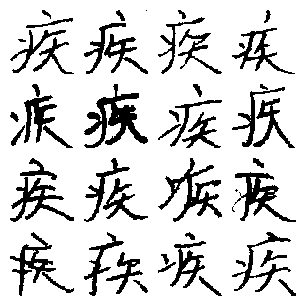 疾疾疾疾
疾疾疾疾
疾疾疾疾
疾疾疾疾